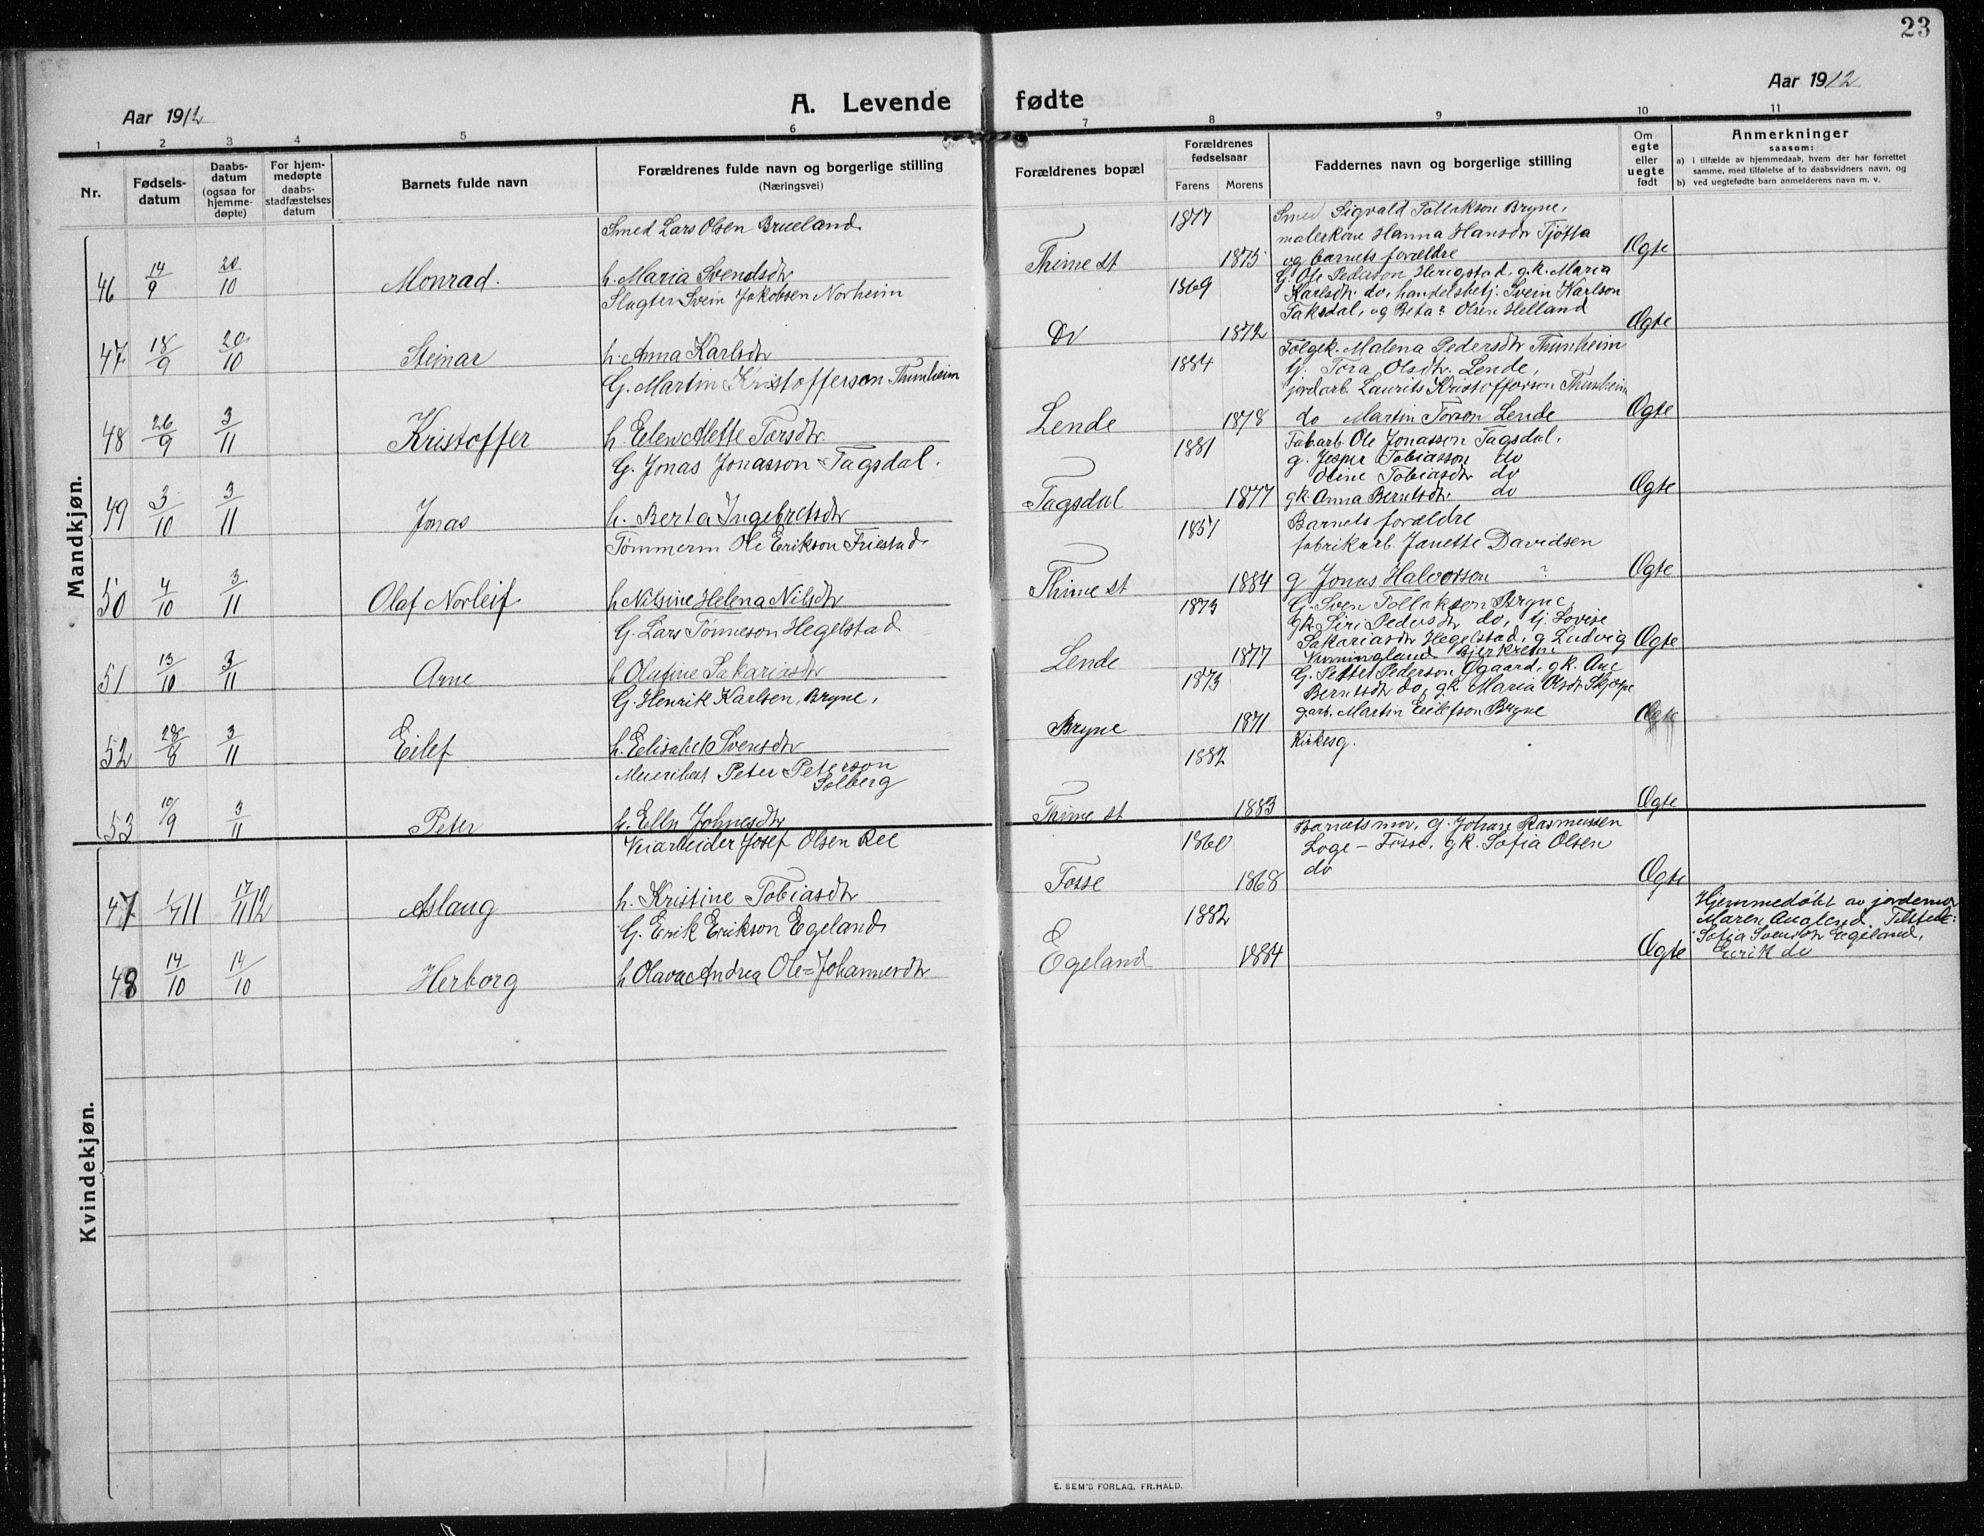 23
Aar 1912
A. Levende fødte
Aar 1912
1 2 3 4 5 6 7 8 9 10 11
Nr.
Fødsels-
datum
Daabs-
datum
(ogsaa for
hjemme-
døpte)
For hjem-
medøpte
daabs-
stadfæstelses
datum
Barnets fulde navn
Forældrenes fulde navn og borgerlige stilling
(Næringsvei)
Forældrenes bopæl
Forældrenes
fødselsaar
Farens Morens
Faddernes navn og borgerlige stilling
Om
egte
eller
uegte
født
Anmerkninger
saasom:
a) i tilfælde av hjemmedaab, hvem der har forrettet
samme, med tilføielse af to daabsvidners navn, og
b) ved uegtefødte barn anmelderens navn m. v.
Mandkjøn.
46 14/9 20/10 Monrad.
Smed Lars Olsen Brueland
h. Maria Svendsdtr
Thime st 1877 1875
Smed Sigvald Tollakson Bryne,
malerkone Hanna Hansdtr Tjötta
og barnets forældre
Ægte
47 18/9 20/10 Steinar
Slagter Svein Jakobsen Norheim
h. Anna Karlsdtr
Do 1869 1872
G. Ole Pederson Herigstad, gk. Maria
Karlsdtr. do, handelsbetj. Svein Karlson
Taksdal, og Beta Olsen Helland
Ægte
48 26/9 3/11 Kristoffer
G. Martin Kristofferson Thunheim
h. Elen Mette Torsdtr
Lende 1884 1878
Følgek. Malena Pedersdtr Thunheim
G. Tora Olsdtr. Lende,
jordarb. Laurits Kristofferson Thunheim
do Martin Torson Lende
Ægte
49 3/10 3/11 Jonas
G. Jonas Jonasson Tagsdal.
h. Berta Ingebretsdtr
Tagsdal 1881 1877
Fabarb. Ole Jonassen Tagsdal,
g. Jesper Tobiasson do
Oline Tobiasdtr do
gk Anna Berntsdtr. do
Ægte
50 4/10 3/11 Olaf Norleif
Tømmerm Ole Erikson Friestad
h Nilsine Helena Nilsdtr
Thime st 1851 1884
Barnets forældre
fabrikarb. Janette Davidsen
g Jonas Halvorsen
Ægte
51 13/10 3/11 Arne
G. Lars Tönneson Hegelstad
h Olafine Sakariasdtr
Lende 1873 1877
G. Sven Tollaksen Bryne,
gk Siri Pedersdtr do, tj. Lovise
Sakariasdtr Hegelstad, g Ludvig
Bjerkreim
Ægte
52 28/8 3/11 Eilef
G. Henrik Karlsen, Bryne,
h. Elisabeth Svensdtr
Bryne 1873 1871
G. Petter Pederson Øgaard, gk. Ane
Berntsdtr do, gk Maria Olsdtr Skjæpe
garb. Martin Eilefson Bryne
Ægte
53 10/9 3/11 Peter
Meieribest Peter Peterson
Solberg
h. Elln Johnesdtr
Thime st 1882 1883
Kirkesg.
Ægte
Kvindekjøn.
47 1/7 11 17/11 12 Aslaug
Veiarbeider Josef Olsen Ree
h. Kristine Tobiasdtr
Fosse 1860 1868
Barnets mor, g. Johan Rasmussen
Loge - Fosse, gk. Sofia Olsen
do
Ægte
48 14/10 14/10 Herborg
G. Erik Erikson Egeland
h Olava Andrea Ole=Johannesdtr
Egeland 1882 1884
Ægte
Hjemmedøbt av jordemor
Maren Augland. Tilstede:
Sofia Svensdtr Egeland,
Eirik do
E. SEM'S FORLAG, FR.HALD.